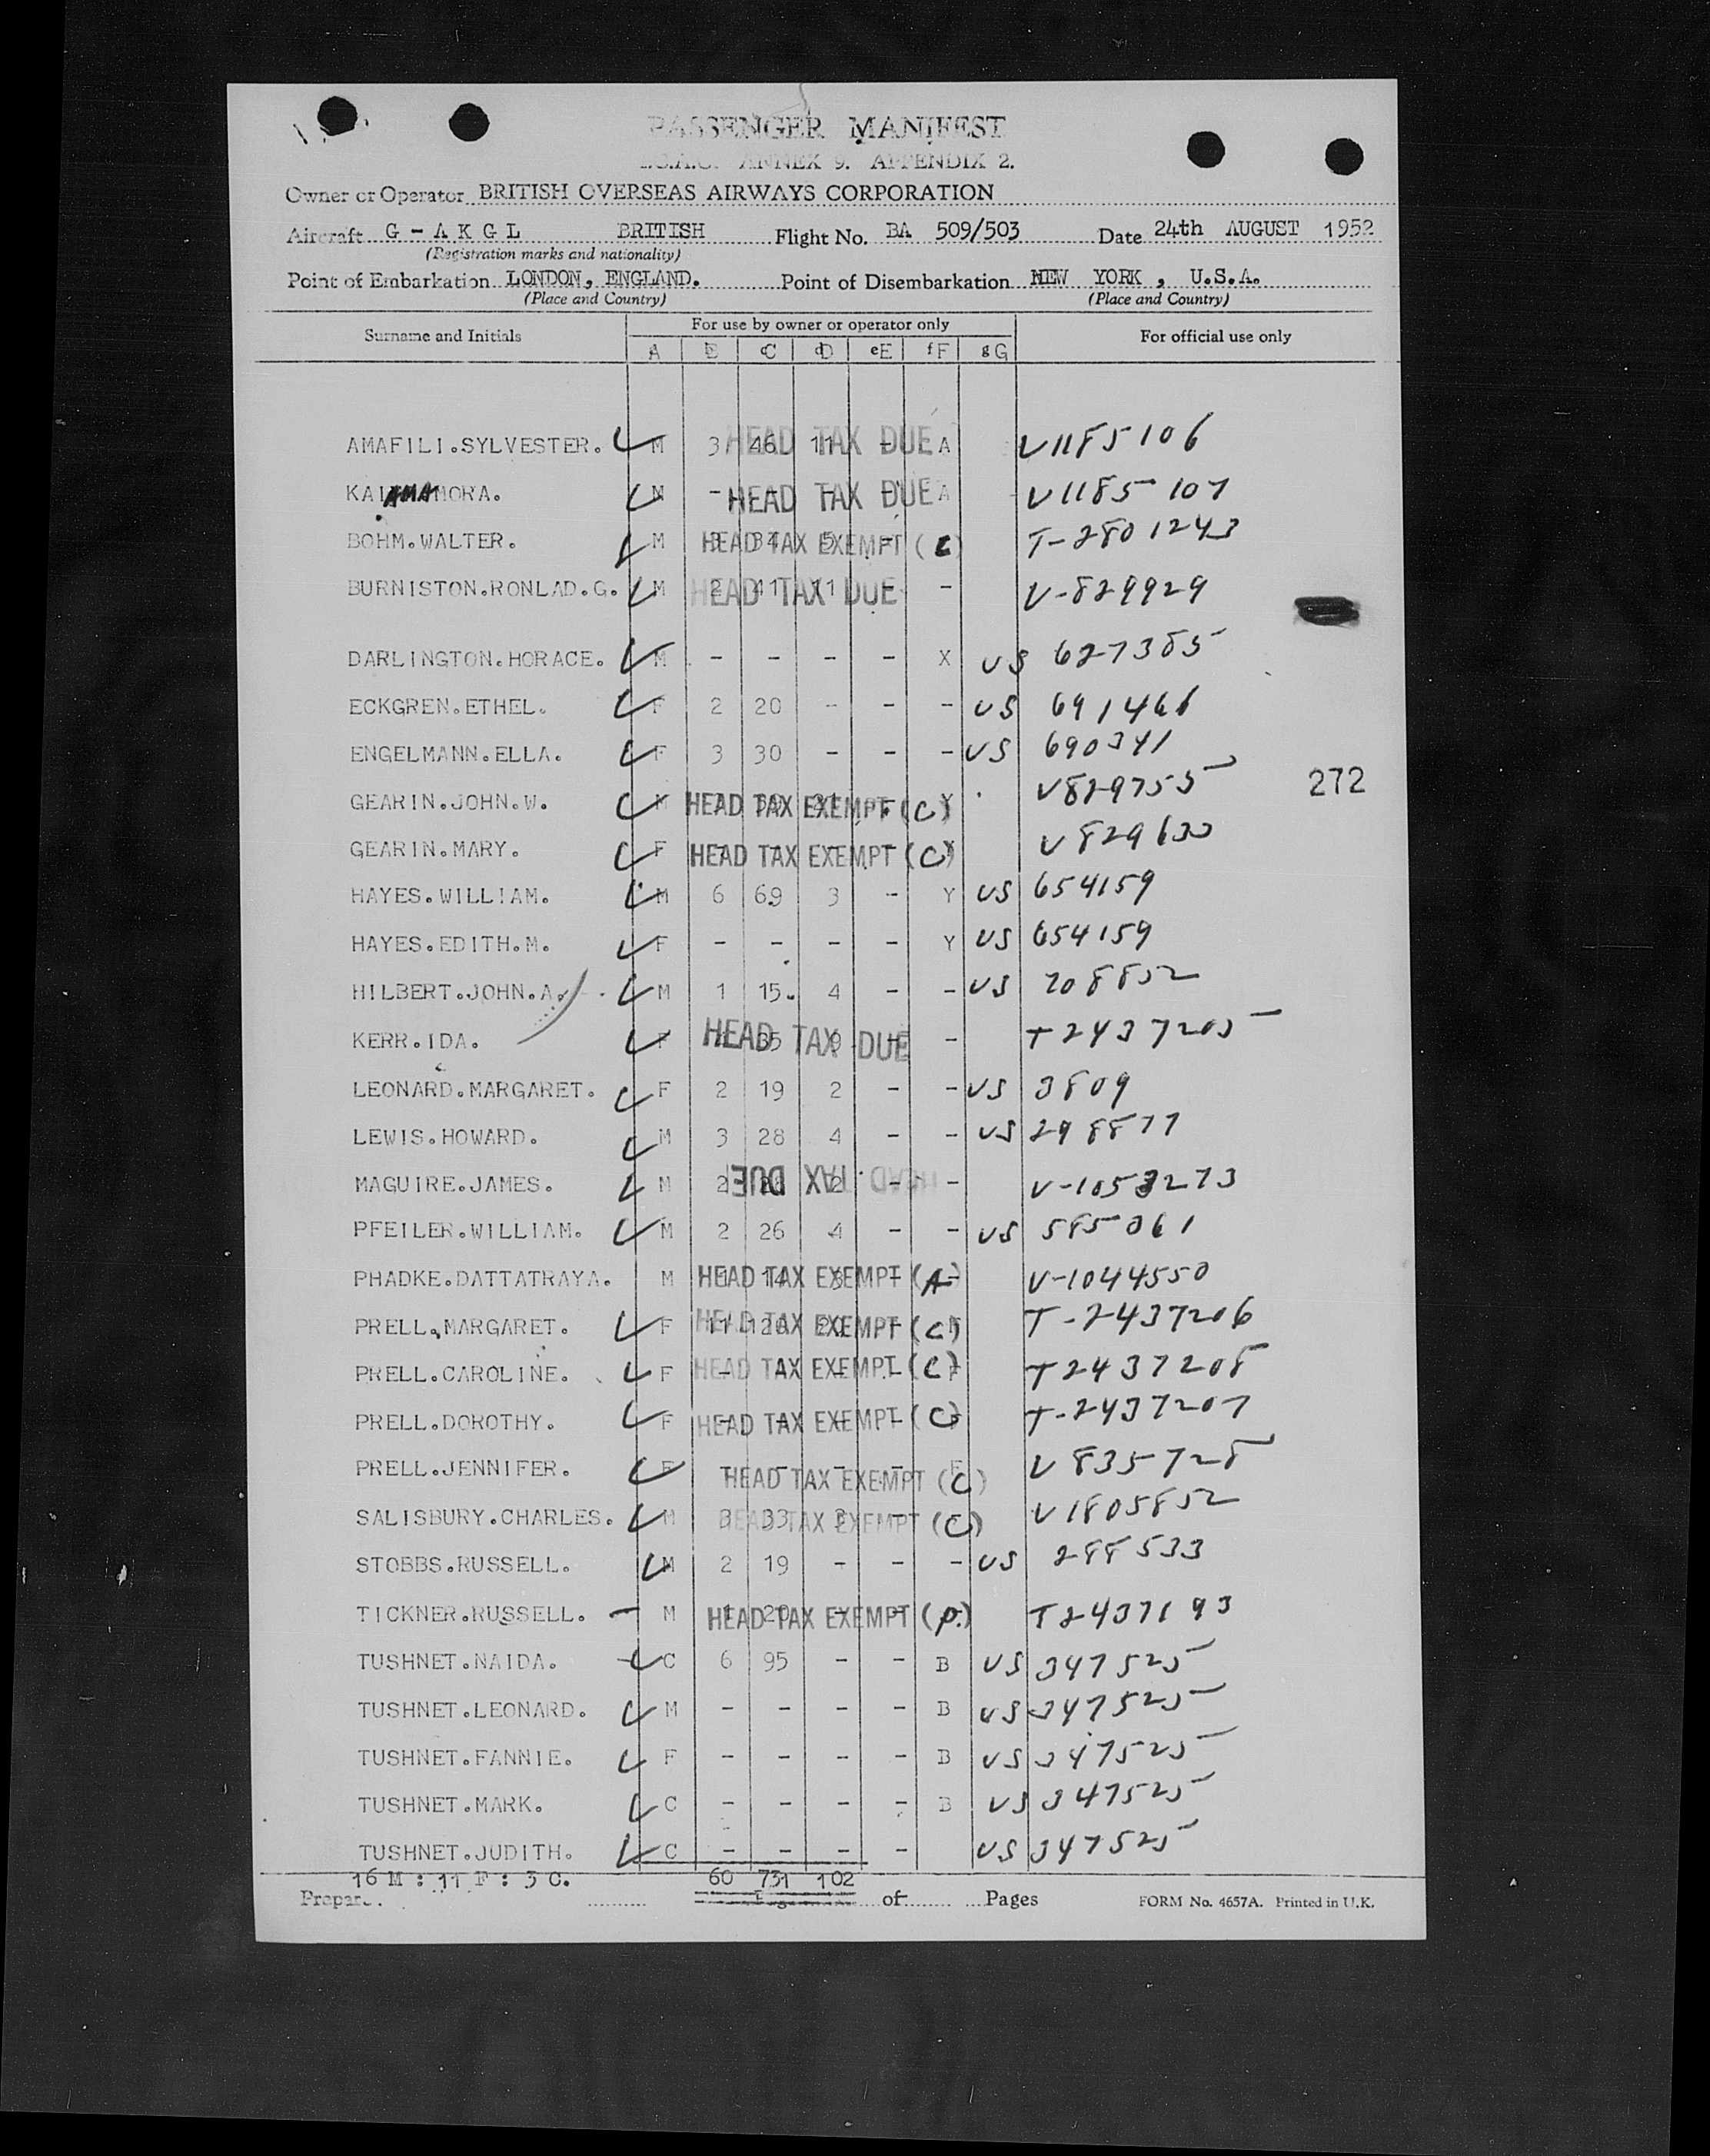 PASSENGER MANIFEST
ANNEX 9. APPENDIX 2.
Owner or Operator BRITISH OVERSEAS AIRWAYS CORPORATION
Aircraft G - A K G L BRITISH Flight No. BA 509/503 Date 24th AUGUST 1952
(Registration marks and nationality)
Point of Embarkation LONDON, ENGLAND. Point of Disembarkation NEW YORK, U.S.A.
(Place and Country) (Place and Country)
Surname and Initials For use by owner or operator only For official use only
A B C D E F G
AMAFILI.SYLVESTER. M 3 46 11 - A HEAD TAX DUE V1185106
AMAMORA. M - HEAD TAX DUE A V1185107
BOHM.WALTER. M 3 34 5 - HEAD TAX EXEMPT (C) T-2801243
BURNISTON.RONLAD.G. M 2 41 11 - HEAD TAX DUE - V-829929
DARLINGTON.HORACE. M - - - - X US 627385
ECKGREN.ETHEL. F 2 20 - - - US 691461
ENGELMANN.ELLA. F 3 30 - - - US 690341
GEARIN.JOHN.W. M HEAD TAX EXEMPT (C) Y V829755
272
GEARIN.MARY. F HEAD TAX EXEMPT (C) V829633
HAYES.WILLIAM. M 6 69 3 - Y US 654159
HAYES.EDITH.M. F - - - - Y US 654159
HILBERT.JOHN.A. M 1 15 4 - - US 208852
KERR.IDA. F 35 9 HEAD TAX DUE - T2437205
LEONARD.MARGARET. F 2 19 2 - - US 3809
LEWIS.HOWARD. M 3 28 4 - - US 298877
MAGUIRE.JAMES. M 2 2 - - HEAD TAX DUE V-1053273
PFEILER.WILLIAM. M 2 26 4 - - US 585061
PHADKE.DATTATRAYA. M 1 14 3 HEAD TAX EXEMPT (A) V-1044550
PRELL.MARGARET. F 11 126 20 HEAD TAX EXEMPT (C) T-2437206
PRELL.CAROLINE. F HEAD TAX EXEMPT (C) T2437208
PRELL.DOROTHY. F HEAD TAX EXEMPT (C) T-2437207
PRELL.JENNIFER. F - - - - HEAD TAX EXEMPT (C) V835728
SALISBURY.CHARLES. M 3 33 3 HEAD TAX EXEMPT (C) V1805852
STOBBS.RUSSELL. M 2 19 - - - US 288533
TICKNER.RUSSELL. M 1 20 HEAD TAX EXEMPT (P.) T2437193
TUSHNET.NAIDA. C 6 95 - - B US 347525
TUSHNET.LEONARD. M - - - - B US 347525
TUSHNET.FANNIE. F - - - - B US 347525
TUSHNET.MARK. C - - - - B US 347525
TUSHNET.JUDITH. C - - - - US 347525
16 M : 11 F : 3 C. 60 731 102
of Pages FORM No. 4657A. Printed in U.K.